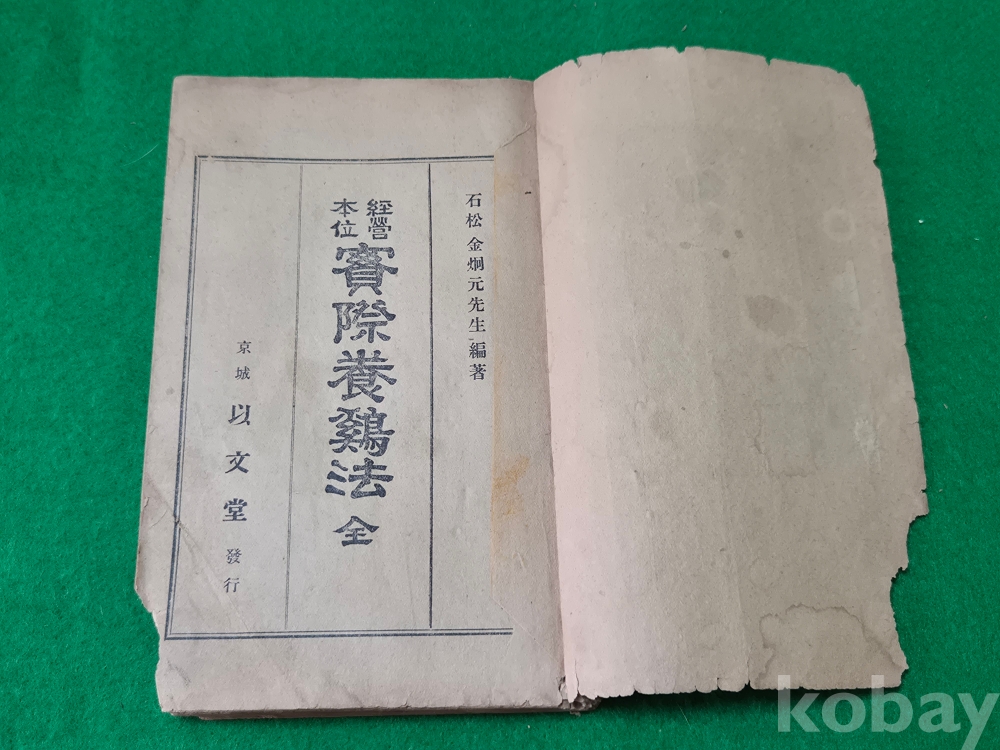 石松 金炯元先生 編著
經營
本位
實際養鷄法 全
京城 以文堂 發行
kobay